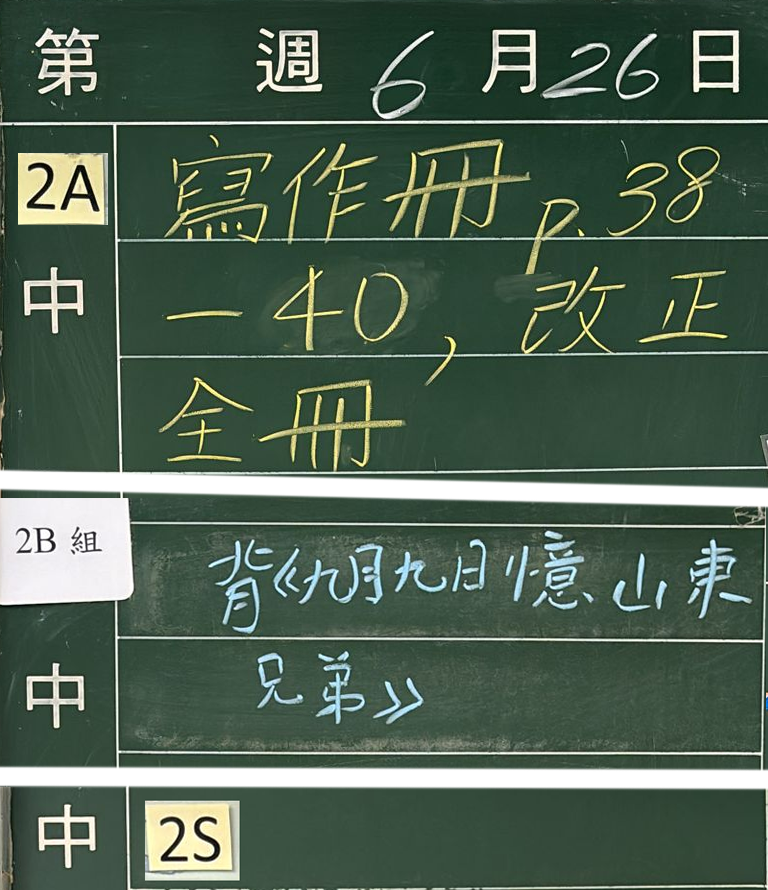 第 週 6 月 26 日
2A 寫作冊 p. 38
中 - 40, 改正
全冊
2B 組 背《九月九日憶山東
中 兄弟》
中 2S